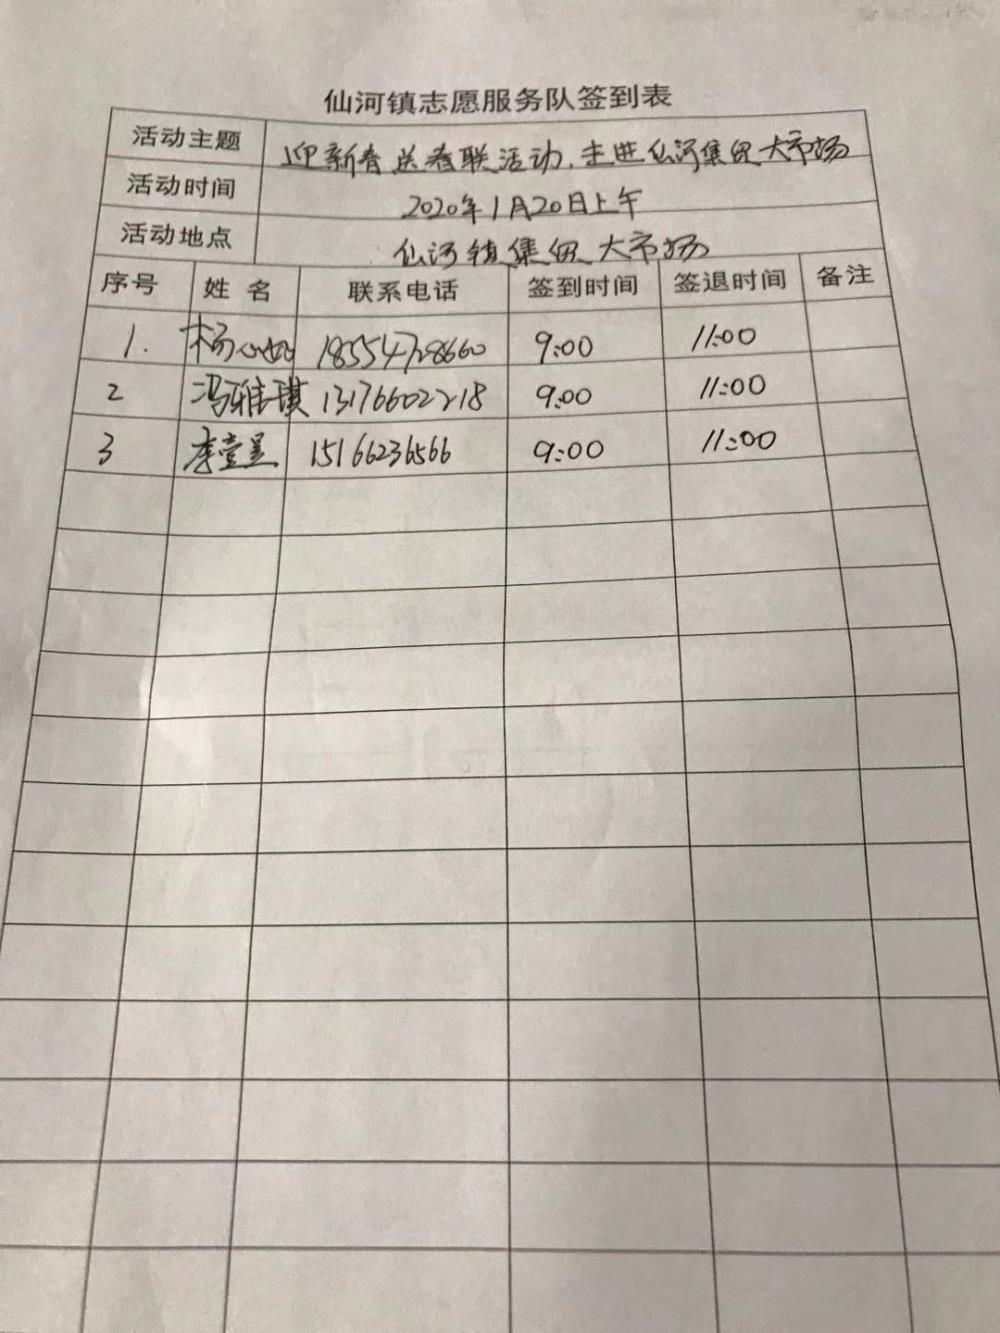 仙河镇志愿服务队签到表
活动主题 迎新春送春联活动.走进仙河集贸大市场
活动时间 2020年1月20日上午
活动地点 仙河镇集贸大市场
序号 姓名 联系电话 签到时间 签退时间 备注
1. 杨心如 18554728660 9:00 11:00
2 冯雅琪 13176602218 9:00 11:00
3 李壹呈 15166236566 9:00 11:00